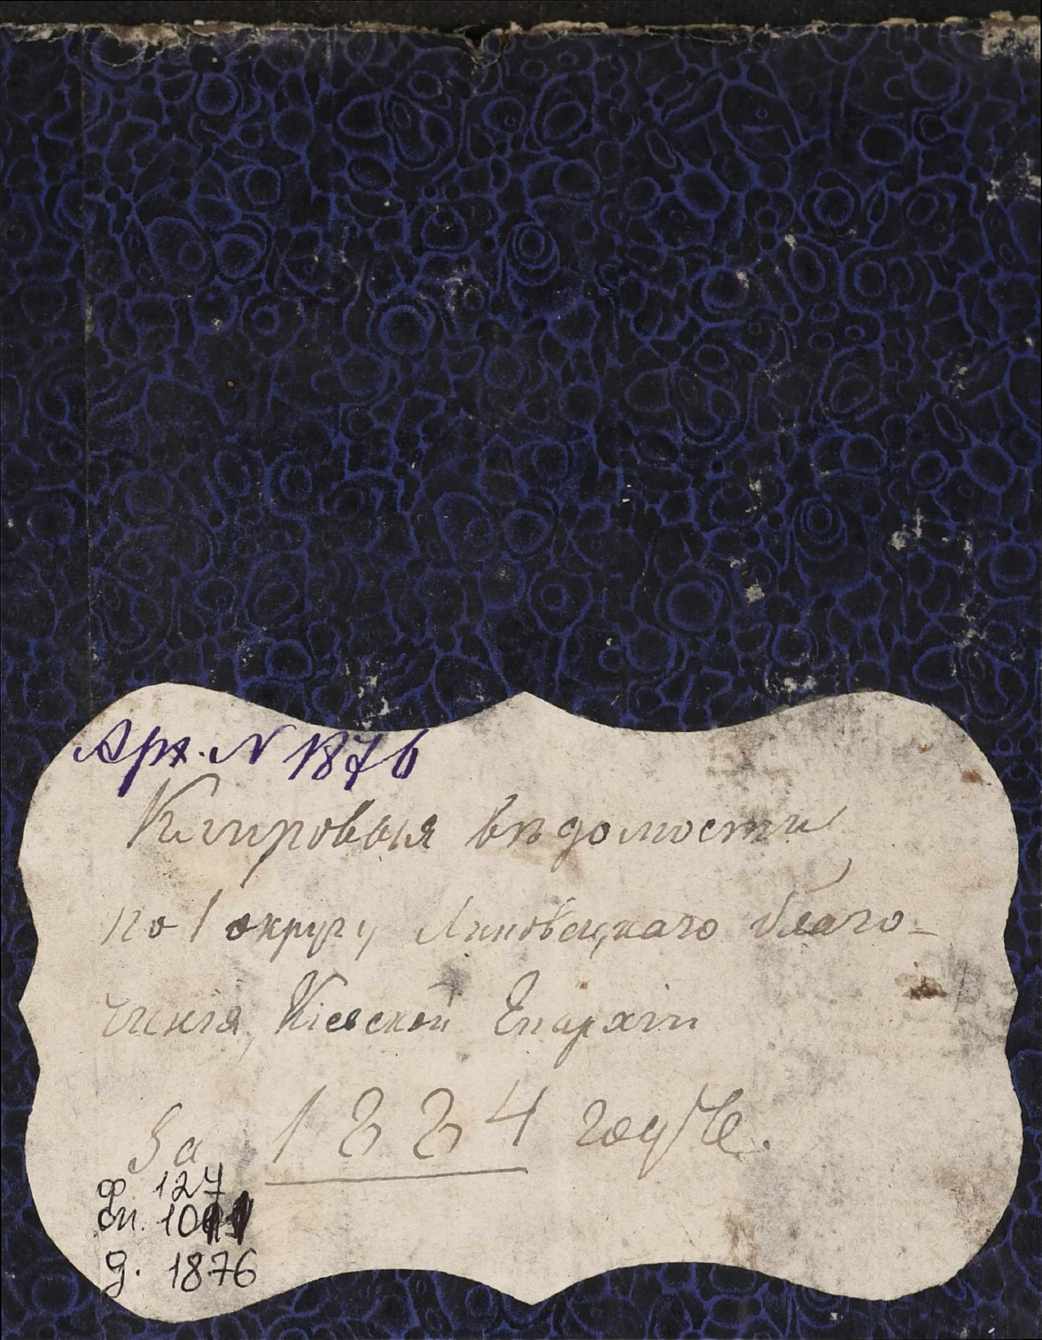 Арх. N 1876
Клировыя вѣдомости
по 1 округу Липовецкаго благо-
чинія, Кіевской Епархіи
За 1884 годъ.
ф. 127
оп.
д. 1876